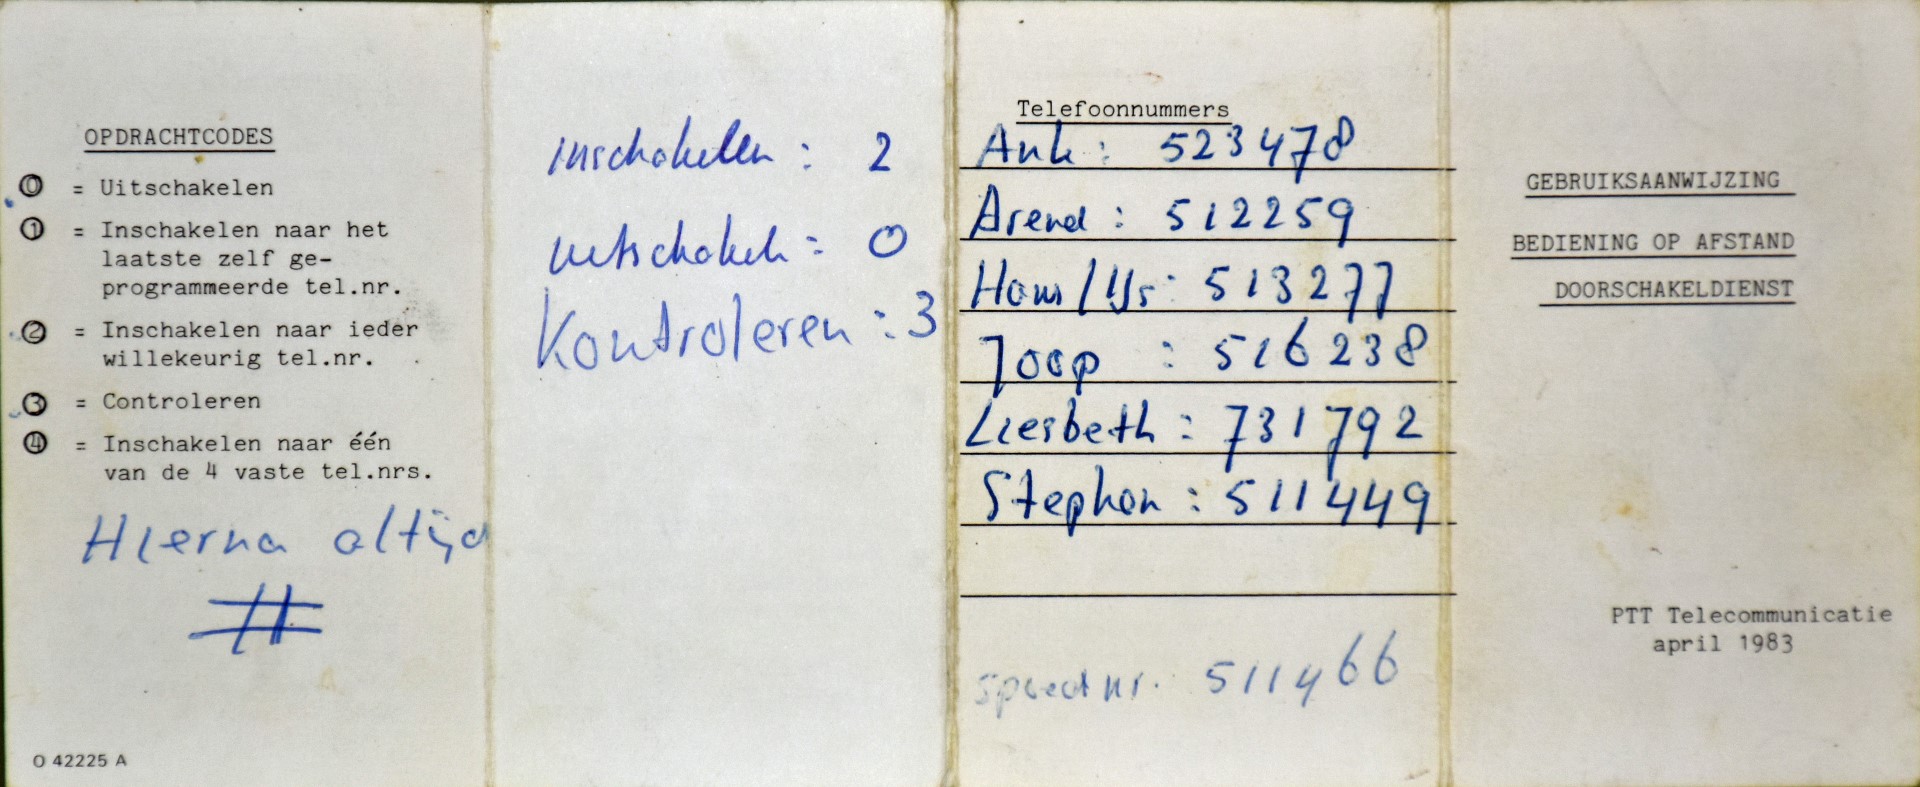 OPDRACHTCODES
0 = Uitschakelen
1 = Inschakelen naar het
laatste zelf ge-
programmeerde tel.nr.
2 = Inschakelen naar ieder
willekeurig tel.nr.
3 = Controleren
4 = Inschakelen naar één
van de 4 vaste tel.nrs.
Hierna altijd
#
O 42225 A
inschakelen : 2
uitschakelen : 0
Kontroleren : 3
Telefoonnummers
Ank : 523478
Arend : 512259
513277
Joop : 516238
Liesbeth : 731792
Stephan : 511449
spoed nr. 511466
GEBRUIKSAANWIJZING
BEDIENING OP AFSTAND
DOORSCHAKELDIENST
PTT Telecommunicatie
april 1983